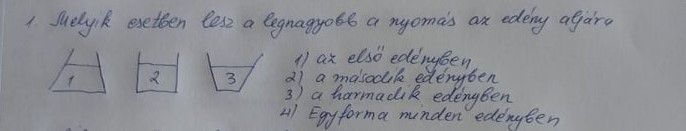 1. Melyik esetben lesz a legnagyobb a nyomás az edény aljára
1 2 3
1) az első edényben
2) a második edényben
3) a harmadik edényben
4) Egyforma minden edényben